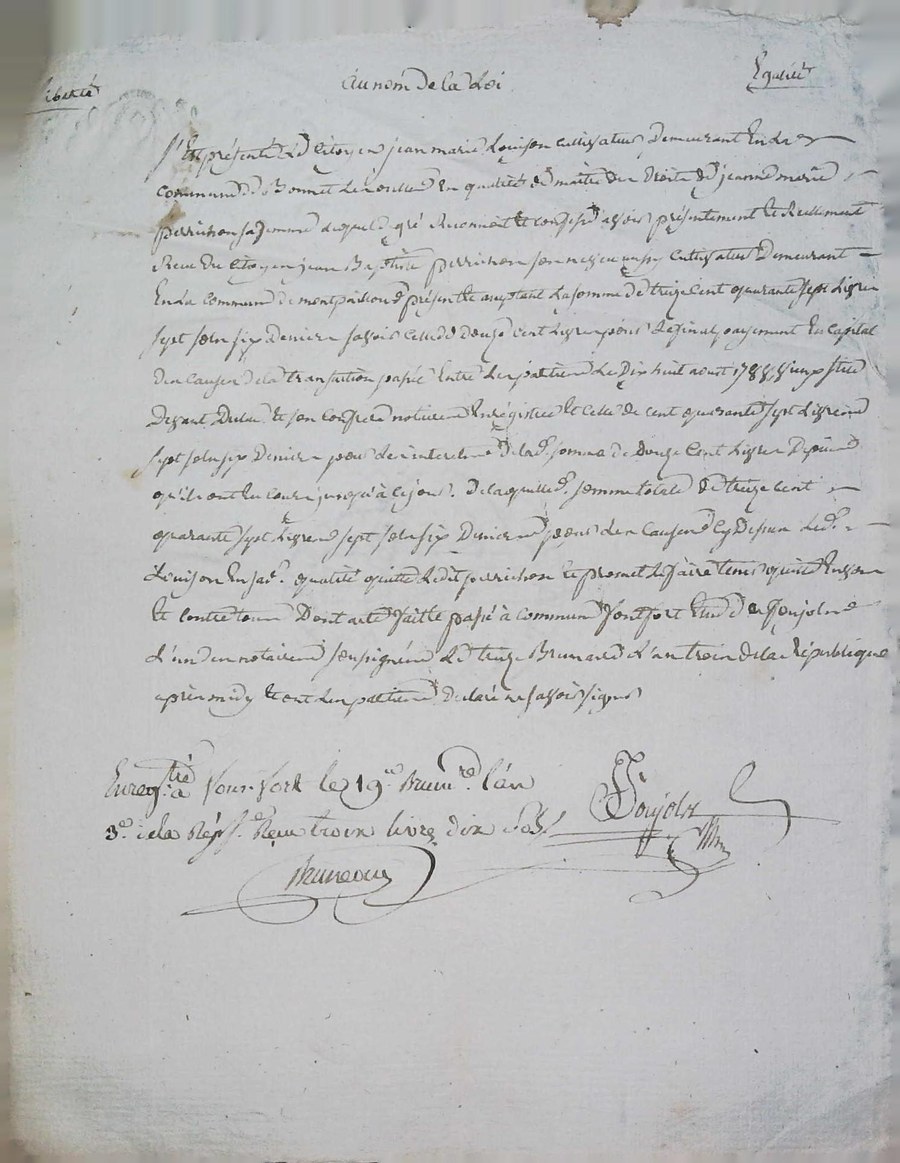 Liberté Au nom de la Loi Egalité
S'Est présenté Le Citoyen jean marie Louison cultivateur Demeurant En La
commune de Bonnet Les oulles En qualité de maître des Droits de jeanne marie
perrichon sa femme lequel de gré Reconnoit Et confesse avoir présentement Et Réellement
Receu Du Citoyen jean Baptiste perrichon son neveu aussy Cultivateur Demeurant
En La commune De présent Et acceptant La somme de treize Cent quarante sept Livres
sept sols six Deniers savoir Celle de Douze cent Livres pour Le final payement En Capital
Des Causes de la transaction passée Entre Les parties Le Dix huit aout 1788 vieux stile
Devant Dulac Et son Confrere notaires Enregistrée Et Celle de Cent quarante sept Livres
sept sols six Deniers pour Les interets de lad. somme de Douze Cent Livres Depuis
qu'ils ont Eu Cours jusqu'à Ce jour. De laquelle d. somme totale de treize Cent
quarante sept Livres sept sols six Deniers pour Les Causes Cy Dessus Led.
Louison En sad. qualité quitte Ledit perrichon Et promet Le faire tenir quitte Envers
Et contre tous Dont acte fait Et passé à Commune fontfort Etude de Poujols
L'un des notaires soussignés Le treize Brumaire L'an trois de la République
après midy Et ont Les parties Déclaré ne savoir signer
Enregistré à Font-fort le 19e Brumre. l'an
3e. de la Rép. Reçu trois livres dix sols
Poujols
Bruneau